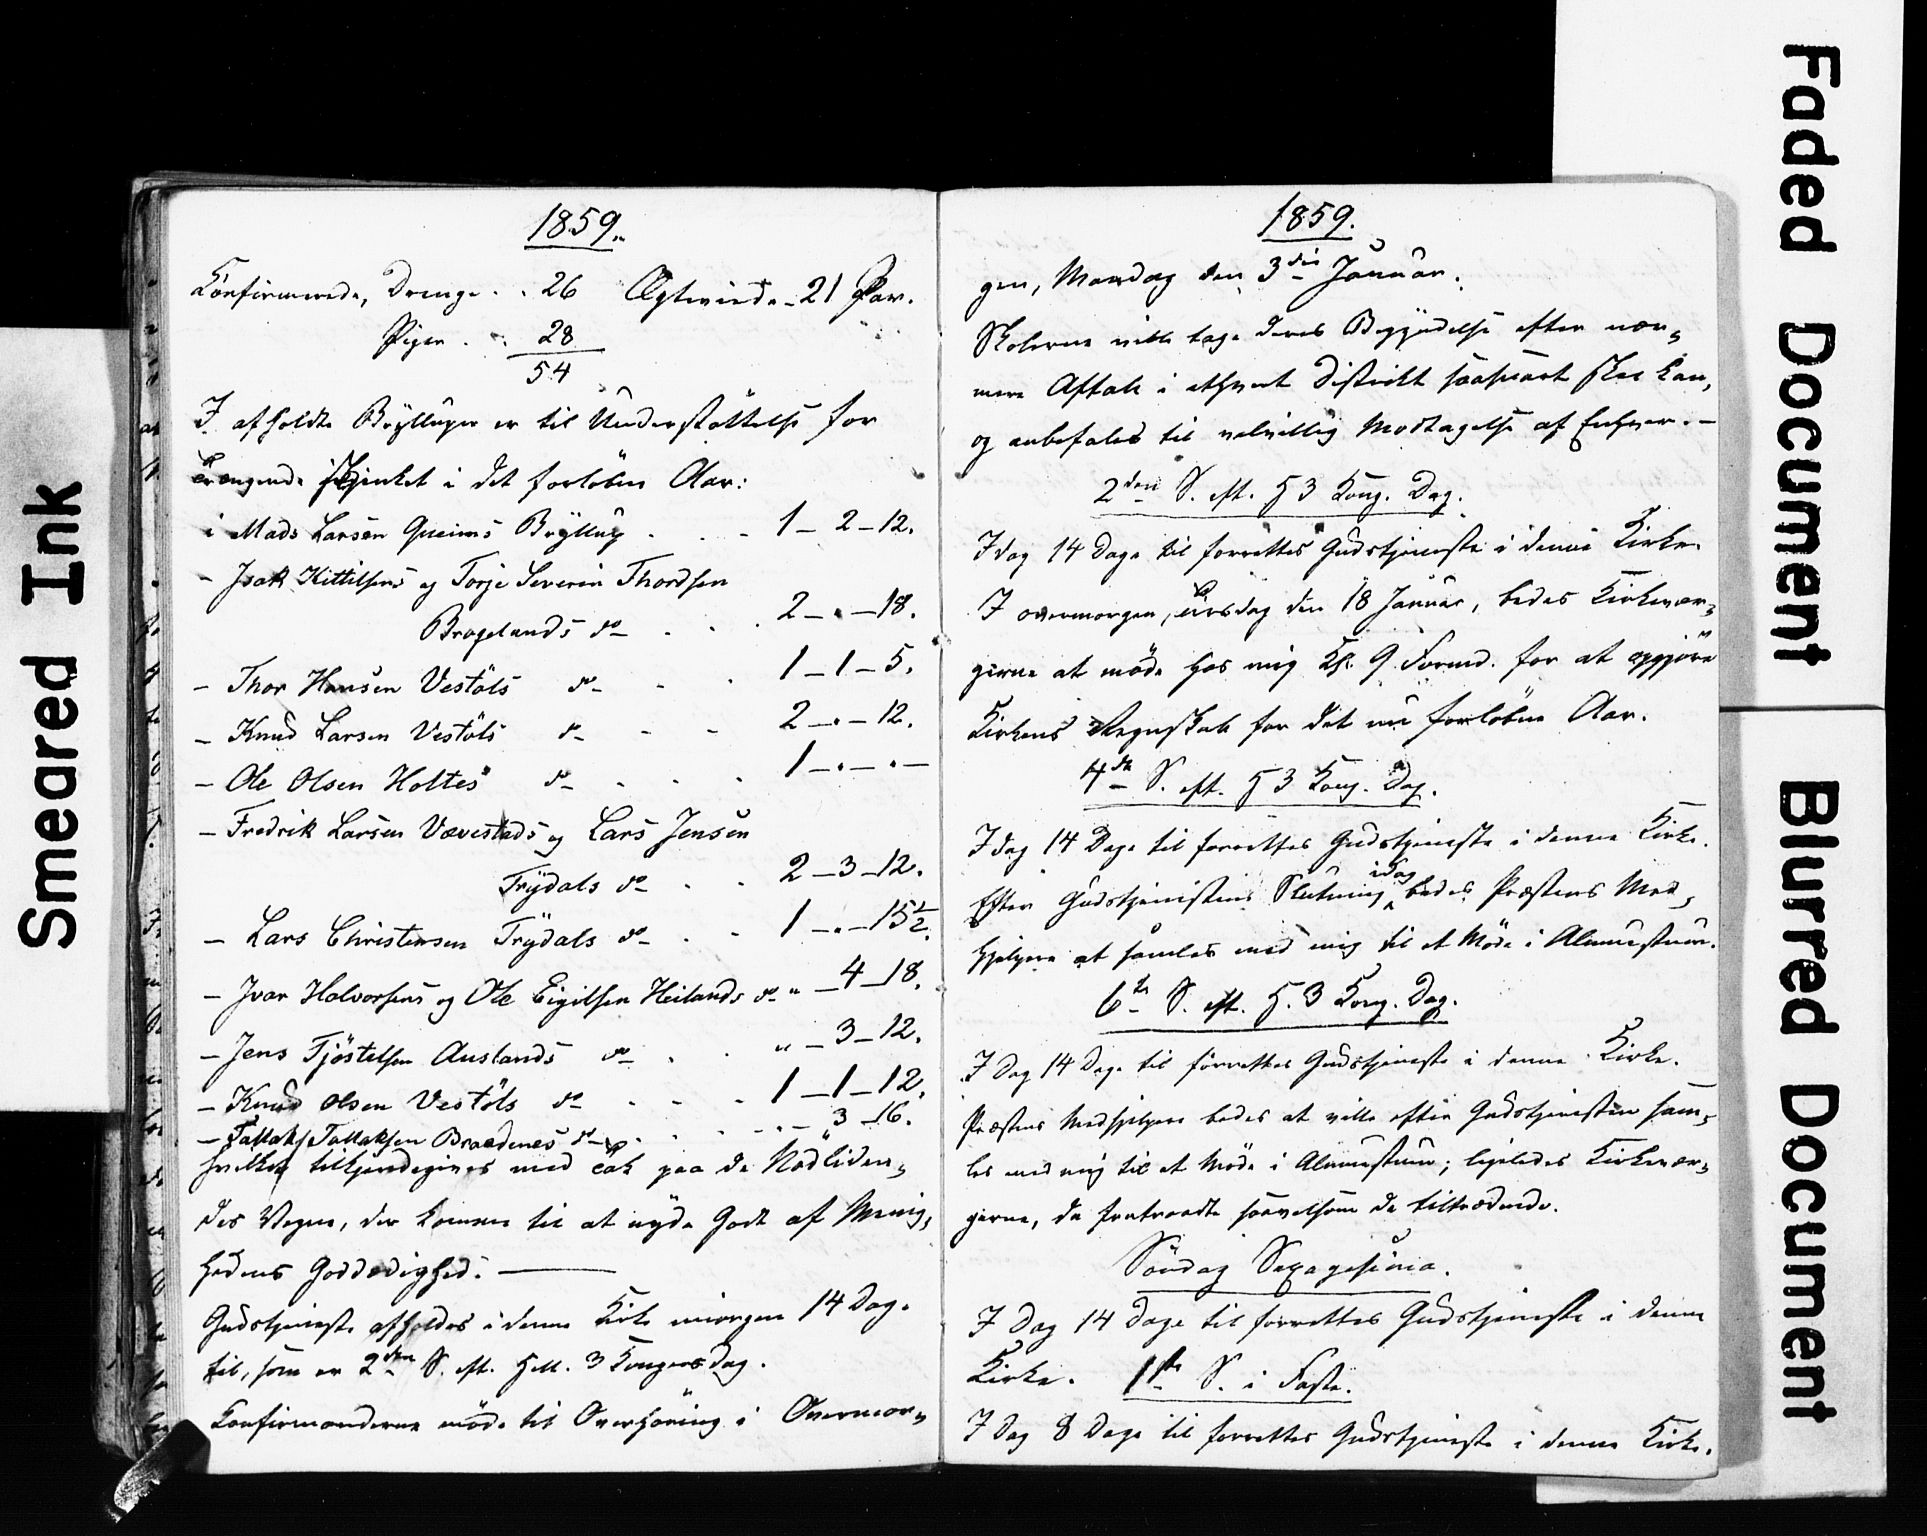 Smeared Ink
1859.
Confirmerede, Drenge . . 26 Ægteviede - 21 Par.
Piger . . 28
54
I afholdte Bryllupper er til Understöttelse for
Trængende skjenket i det forløbne Aar:
i Mads Larsen Gueims Bryllup . . . 1 - 2 - 12.
- Isak Kittilsens og Torje Severin Thordsen
Bragelands do . . . 2 - " - 18.
- Thor Hansen Vestöls do - . 1 - 1 - 5.
- Knud Larsen Vestöls do - - 2 - " - 12.
- Ole Olsen Holtes do . . . 1 - " - " -
- Fredrik Larsen Vævestads og Lars Jensen
Trydals do . . 2 - 3 - 12.
- Lars Christensen Trydals do . . 1 - " - 15 1/2.
- Ivar Halvorsens og Ole Eigilsen Heilands do " - 4 - 18.
- Jens Tjöstelsen Auslands do . . " - 3 - 12.
- Knud Olsen Vestöls do - - - 1 - 1 - 12.
- Tallaks Tallaksen Braadenes do - . . . " - 3 - 16.
hvilket tilkjendegives med Tak paa de Nödliden-
des Vegne, der komme til at nyde Godt af Menig-
hedens Goddædighed. ——
Gudstjeneste afholdes i denne Kirke imorgen 14 Dage
til, som er 2den S. eft. Hell. 3 Kongers Dag.
Confirmanderne möde til Overhöring i Overmor-
1859.
gen, Mandag den 3die Januar.
Skolerne ville tage deres Begyndelse efter nær-
mere Aftale i ethvert District saasnart skee kan,
og anbefales til velvillig Modtagelse af Enhver. -
2den S. eft. H 3 Kong. Dag.
I dag 14 Dage til forrettes Gudstjeneste i denne Kirke.
I overmorgen, Tirsdag den 18 Januar, bedes Kirkevær-
gerne at möde hos mig Kl. 9 Formd. for at opgjöre
Kirkens Regnskab for det nu forløbne Aar.
4de S. eft. H 3 Kong. Dag.
I dag 14 Dage til forrettes Gudstjeneste i denne Kirke.
Efter Gudstjenestens Slutning idag bedes Præstens Med-
hjelpere at samles med mig til et Möde i Almuestuen.
6te S. eft. H. 3 Kong. Dag.
I Dag 14 Dage til forrettes Gudstjeneste i denne Kirke.
Præstens Medhjelpere bedes at ville efter Gudstjenesten sam-
les med mig til et Möde i Almuestuen; ligeledes Kirkevær-
gerne, de fratraadte saavelsom de tiltrædende.
Söndag Sexagesima.
I Dag 14 Dage til forrettes Gudstjeneste i denne
Kirke. 1ste S. i Faste.
I Dag 8 Dage til forrettes Gudstjeneste i denne Kirke.
Faded Document
Blurred Document